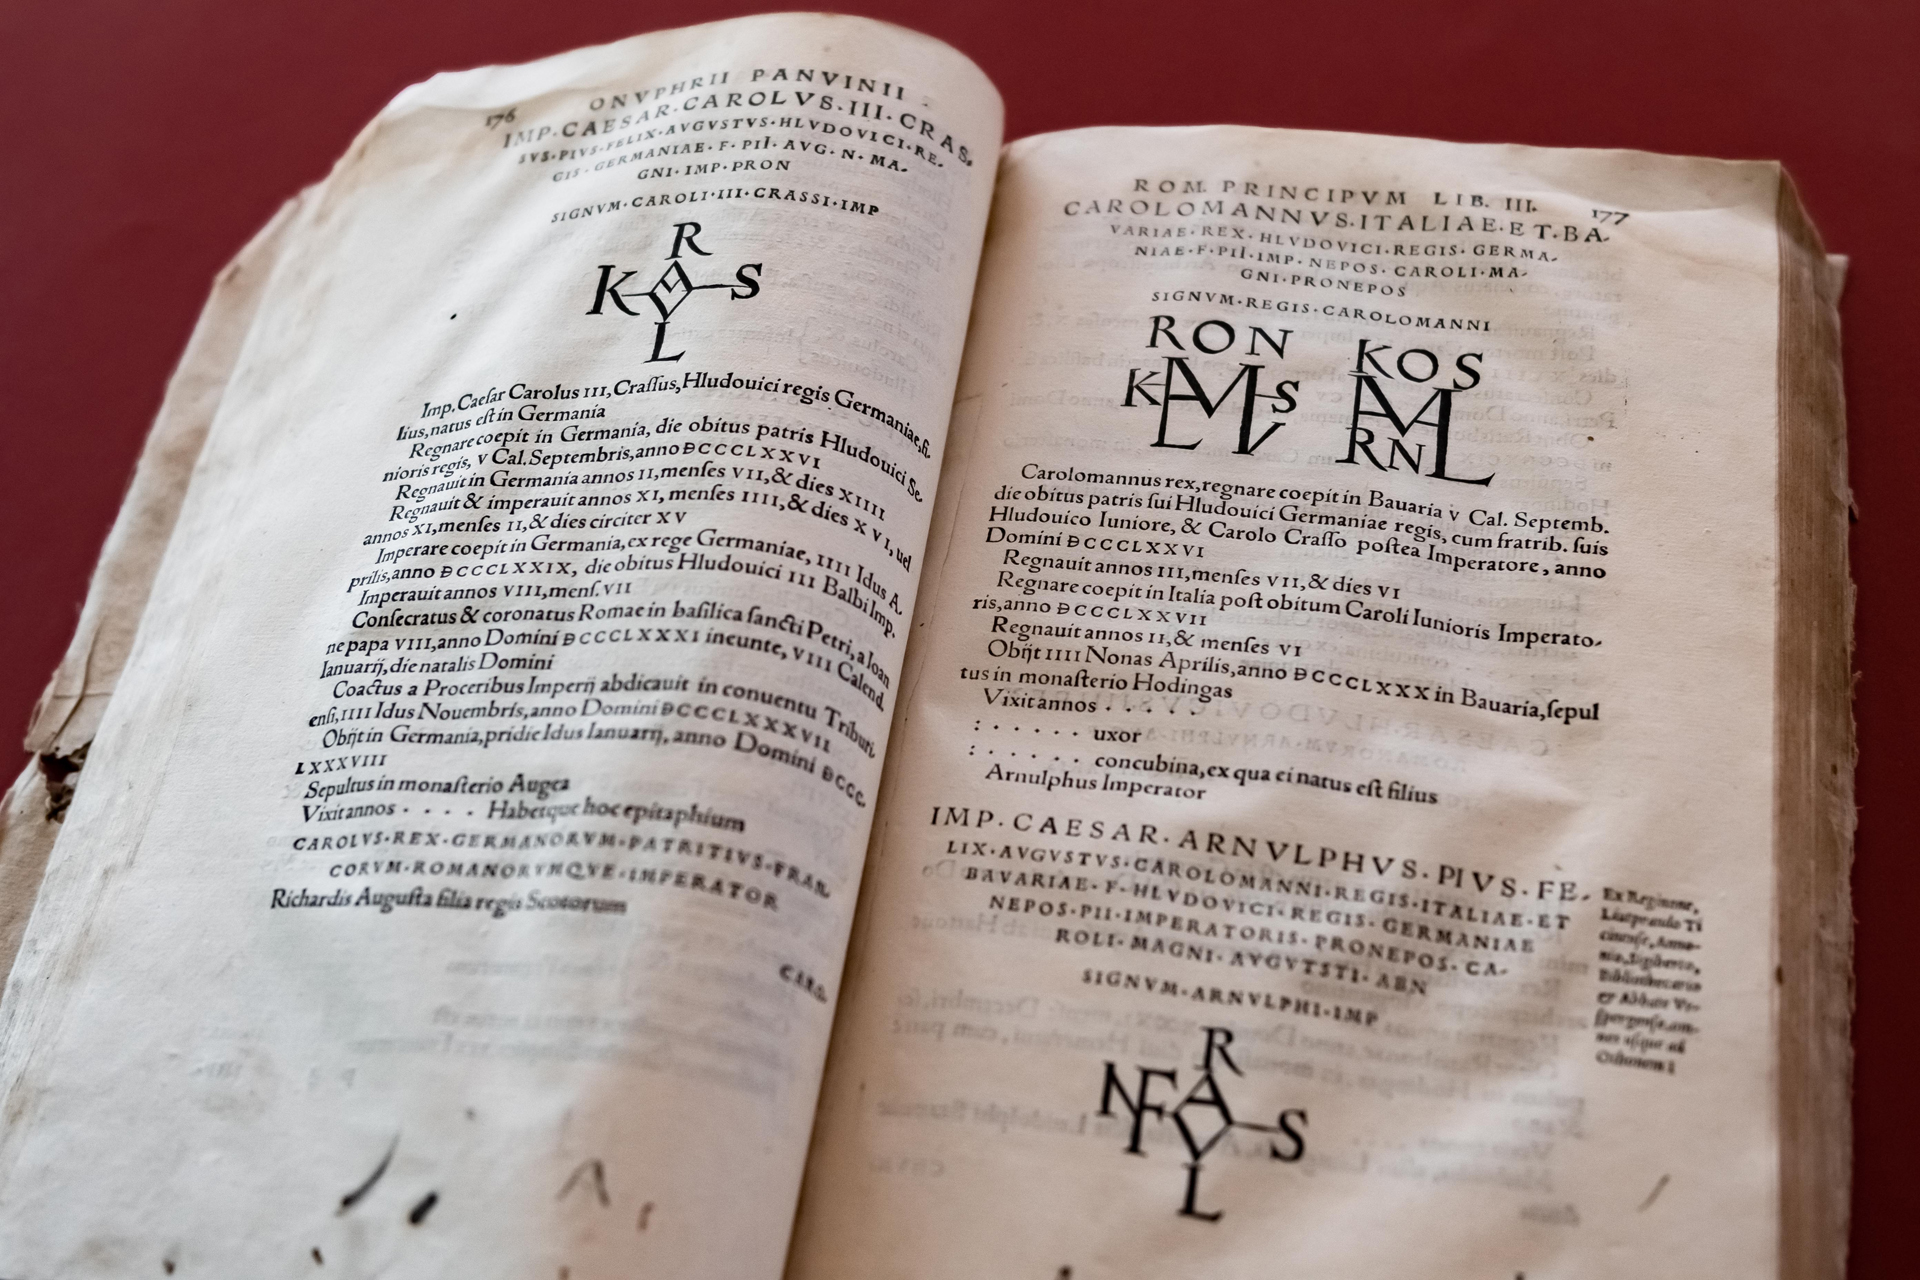 176
ONVPHRII PANVINII
IMP·CAESAR·CAROLVS·III·CRAS
SVS·PIVS·FELIX·AVGVSTVS·HLVDOVICI·RE-
GIS·GERMANIAE·F·PII·AVG·N·MA-
GNI·IMP·PRON
SIGNVM·CAROLI·III·CRASSI·IMP
R
K S
L
Imp. Caeſar Carolus III, Craſſus, Hludouici regis Germaniae, fi-
lius, natus eſt in Germania
Regnare coepit in Germania, die obitus patris Hludouici Se-
nioris regis, V Cal. Septembris, anno DCCCLXXVI
Regnauit in Germania annos II, menſes VII, & dies XIIII
Regnauit & imperauit annos XI, menſes IIII, & dies XVI, uel
annos XI, menſes II, & dies circiter XV
Imperare coepit in Germania, ex rege Germaniae, IIII Idus A-
prilis, anno DCCCLXXIX, die obitus Hludouici III Balbi Imp.
Imperauit annos VIII, menſ. VII
Conſecratus & coronatus Romae in baſilica ſancti Petri, a Ioan
ne papa VIII, anno Domini DCCCLXXXI ineunte, VIII Calend.
Ianuarij, die natalis Domini
Coactus a Proceribus Imperij abdicauit in conuentu Triburi-
enſi, IIII Idus Nouembris, anno Domini DCCCLXXXVII
Obijt in Germania, pridie Idus Ianuarij, anno Domini DCCC-
LXXXVIII
Sepultus in monaſterio Augea
Vixit annos · · · · Habetque hoc epitaphium
CAROLVS·REX·GERMANORVM·PATRITIVS·FRAN-
CORVM·ROMANORVMQVE·IMPERATOR
Richardis Auguſta filia regis Scotorum
CARO-
ROM. PRINCIPVM LIB. III. 177
CAROLOMANNVS·ITALIAE·ET·BA-
VARIAE·REX·HLVDOVICI·REGIS·GERMA-
NIAE·F·PII·IMP·NEPOS·CAROLI·MA-
GNI·PRONEPOS
SIGNVM·REGIS·CAROLOMANNI
RON KOS
K M S M
L V RNL
Carolomannus rex, regnare coepit in Bauaria V Cal. Septemb.
die obitus patris ſui Hludouici Germaniae regis, cum fratrib. ſuis
Hludouico Iuniore, & Carolo Craſſo poſtea Imperatore, anno
Domini DCCCLXXVI
Regnauit annos III, menſes VII, & dies VI
Regnare coepit in Italia poſt obitum Caroli Iunioris Imperato-
ris, anno DCCCLXXVII
Regnauit annos II, & menſes VI
Obijt IIII Nonas Aprilis, anno DCCCLXXX in Bauaria, ſepul
tus in monaſterio Hodingas
Vixit annos · · · · ·
: · · · · · uxor
: · · · · · concubina, ex qua ei natus eſt filius
Arnulphus Imperator
IMP·CAESAR·ARNVLPHVS·PIVS·FE-
LIX·AVGVSTVS·CAROLOMANNI·REGIS·ITALIAE·ET
BAVARIAE·F·HLVDOVICI·REGIS·GERMANIAE
NEPOS·PII·IMPERATORIS·PRONEPOS·CA-
ROLI·MAGNI·AVGVTSTI·ABN
SIGNVM·ARNVLPHI·IMP
R
NF A S
L
Ex Reginone,